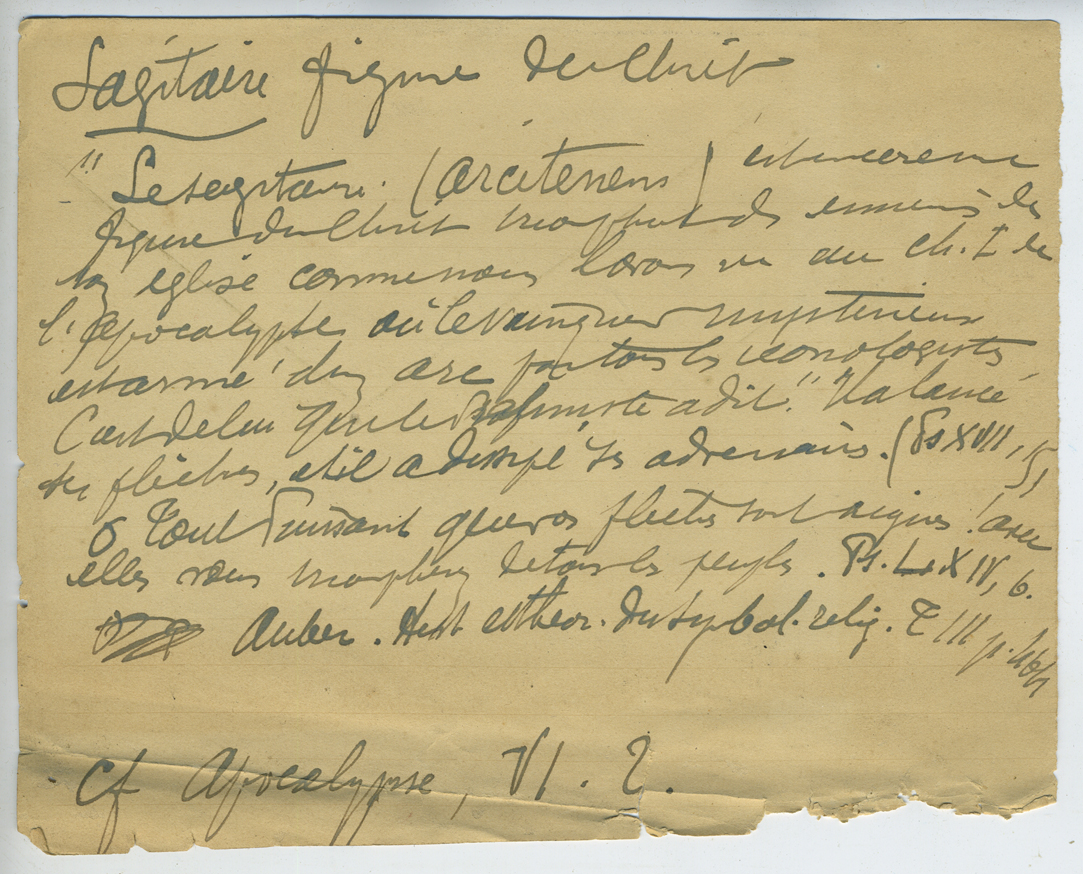 Sagitaire figure du Christ
" Le sagitaire. (arcitenens) est encore une
figure du Christ triomphant des ennemis de
son église comme nous l'avons vu au ch. I de
l'apocalypse où le vainqueur mystérieux
est armé d'un arc par tous les iconologistes
C'est de lui que le Psalmiste a dit." Il a lancé
ses flèches, et il a dissipé ses adversaires. (Ps XVII, 15)
o Tout Puissant que vos flèches sont aigues ! avec
elles vous triomphez de tous les peuples. Ps. LXIV, 6.
Auber. Hist et theor. du symbol. relig. T III p.
cf Apocalypse, VI. 2.